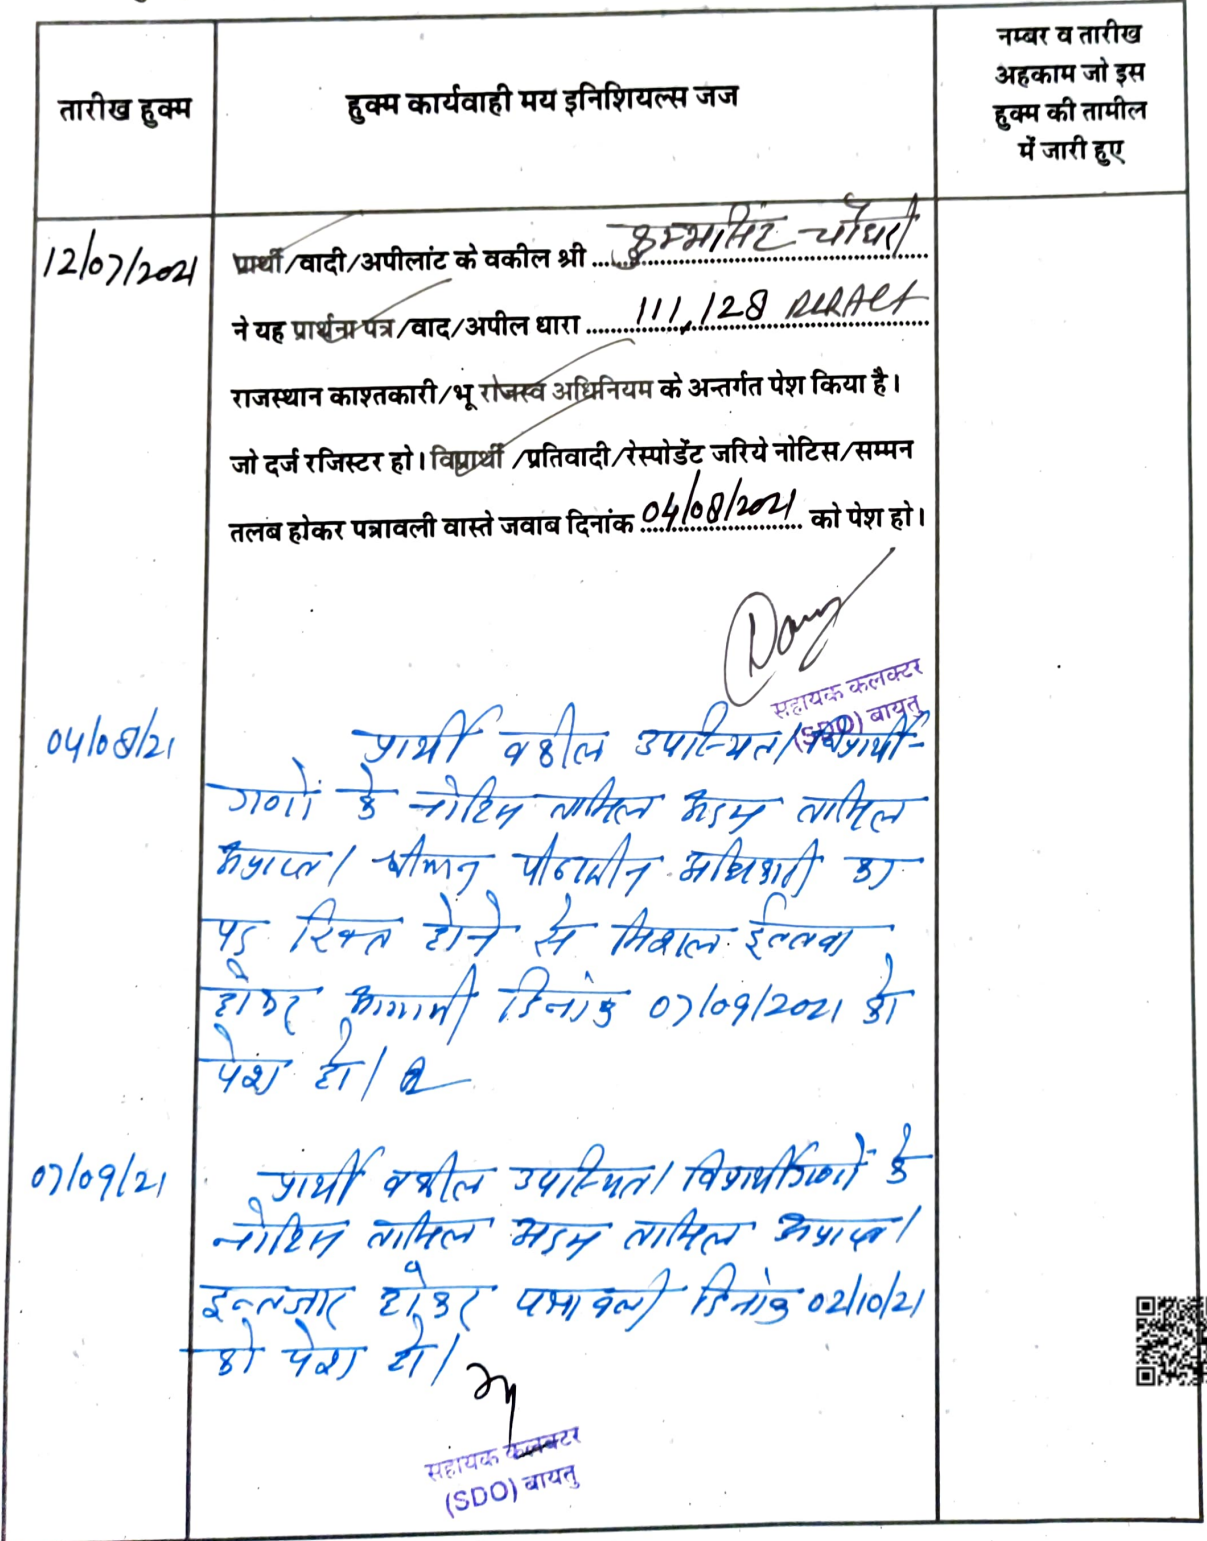 तारीख हुक्म
हुक्म कार्यवाही मय इनिशियल्स जज
नम्बर व तारीख
अहकाम जो इस
हुक्म की तामील
में जारी हुए
12/07/2021
प्रार्थी/वादी/अपीलांट के वकील श्री ..... चौधरी
ने यह प्रार्थना पत्र/वाद/अपील धारा ..... 111,128
राजस्थान काश्तकारी/भू राजस्व अधिनियम के अन्तर्गत पेश किया है।
जो दर्ज रजिस्टर हो। विप्रार्थी/प्रतिवादी/रेस्पोडेंट जरिये नोटिस/सम्मन
तलब होकर पत्रावली वास्ते जवाब दिनांक 04/08/2021 को पेश हो।
सहायक कलक्टर
(SDO) बायतु
04/08/21
प्रार्थी वकील उपस्थित। विप्रार्थी-
गणों के नोटिस तामिल अदम तामिल
अप्राप्त। श्रीमान् पीठासीन अधिकारी का
पद रिक्त होने से मिशल ईलतवा
होकर आगामी दिनांक 07/09/2021 को
पेश हो।
07/09/21
प्रार्थी वकील उपस्थित। विप्रार्थीगणों के
नोटिस तामिल अदम तामिल अप्राप्त।
इन्तजार होकर पत्रावली दिनांक 02/10/21
को पेश हो।
सहायक कलक्टर
(SDO) बायतु